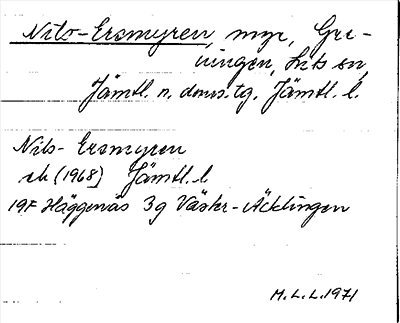 Nils-Ersmyren, myr, Gre-
ningen, Lits sn,
Jämtl. n. doms.tg. Jämtl. l.
Nils-Ersmyren
ek (1968) Jämtl. l
19F Häggenås 3g Väster-Äcklingen
M.L.L. 1971